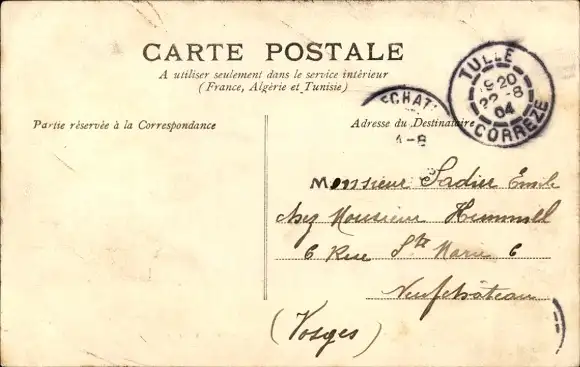 CARTE POSTALE
A utiliser seulement dans le service intérieur
(France, Algérie et Tunisie)
TULLE
9 20
22 -8
04
CORRÈZE
ECHAT
Partie réservée à la Correspondance
Adresse du Destinataire
Monsieur Sadier Emile
chez Monsieur Hummel
6 Rue Ste Marie 6
Neufchâteau
(Vosges)